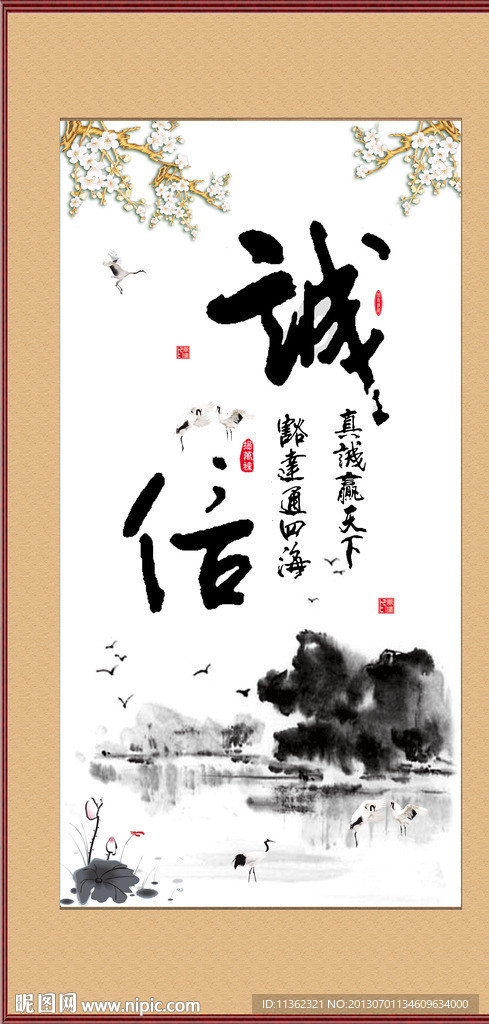 誠信
真誠贏天下
豁達通四海
昵图网 www.nipic.com
ID:11362321 NO:20130701134609634000